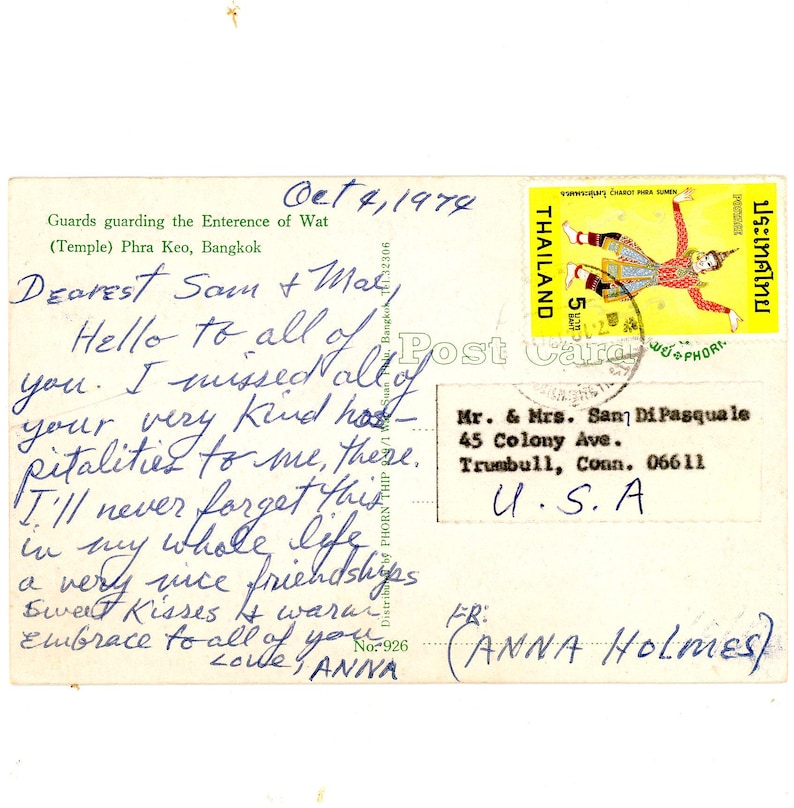 Oct 4, 1974
Guards guarding the Enterence of Wat
(Temple) Phra Keo, Bangkok
Dearest Sam & Mae,
Hello to all of
you. I missed all of
your very kind hos-
pitalities to me, there.
I'll never forget this
in my whole life
a very nice friendships
Sweet Kisses & warm
embrace to all of you
Love, ANNA
Distributed by PHORN THIP
Bangkok Tel.32306
No. 926
Post Card
จรดพระสุเมรุ CHAROT PHRA SUMEN
THAILAND
5 บาท
BAHT
POSTAGE
ประเทศไทย
PHORN
Mr. & Mrs. Sam DiPasquale
45 Colony Ave.
Trumbull, Conn. 06611
U.S.A
FR:
(ANNA HOLMES)